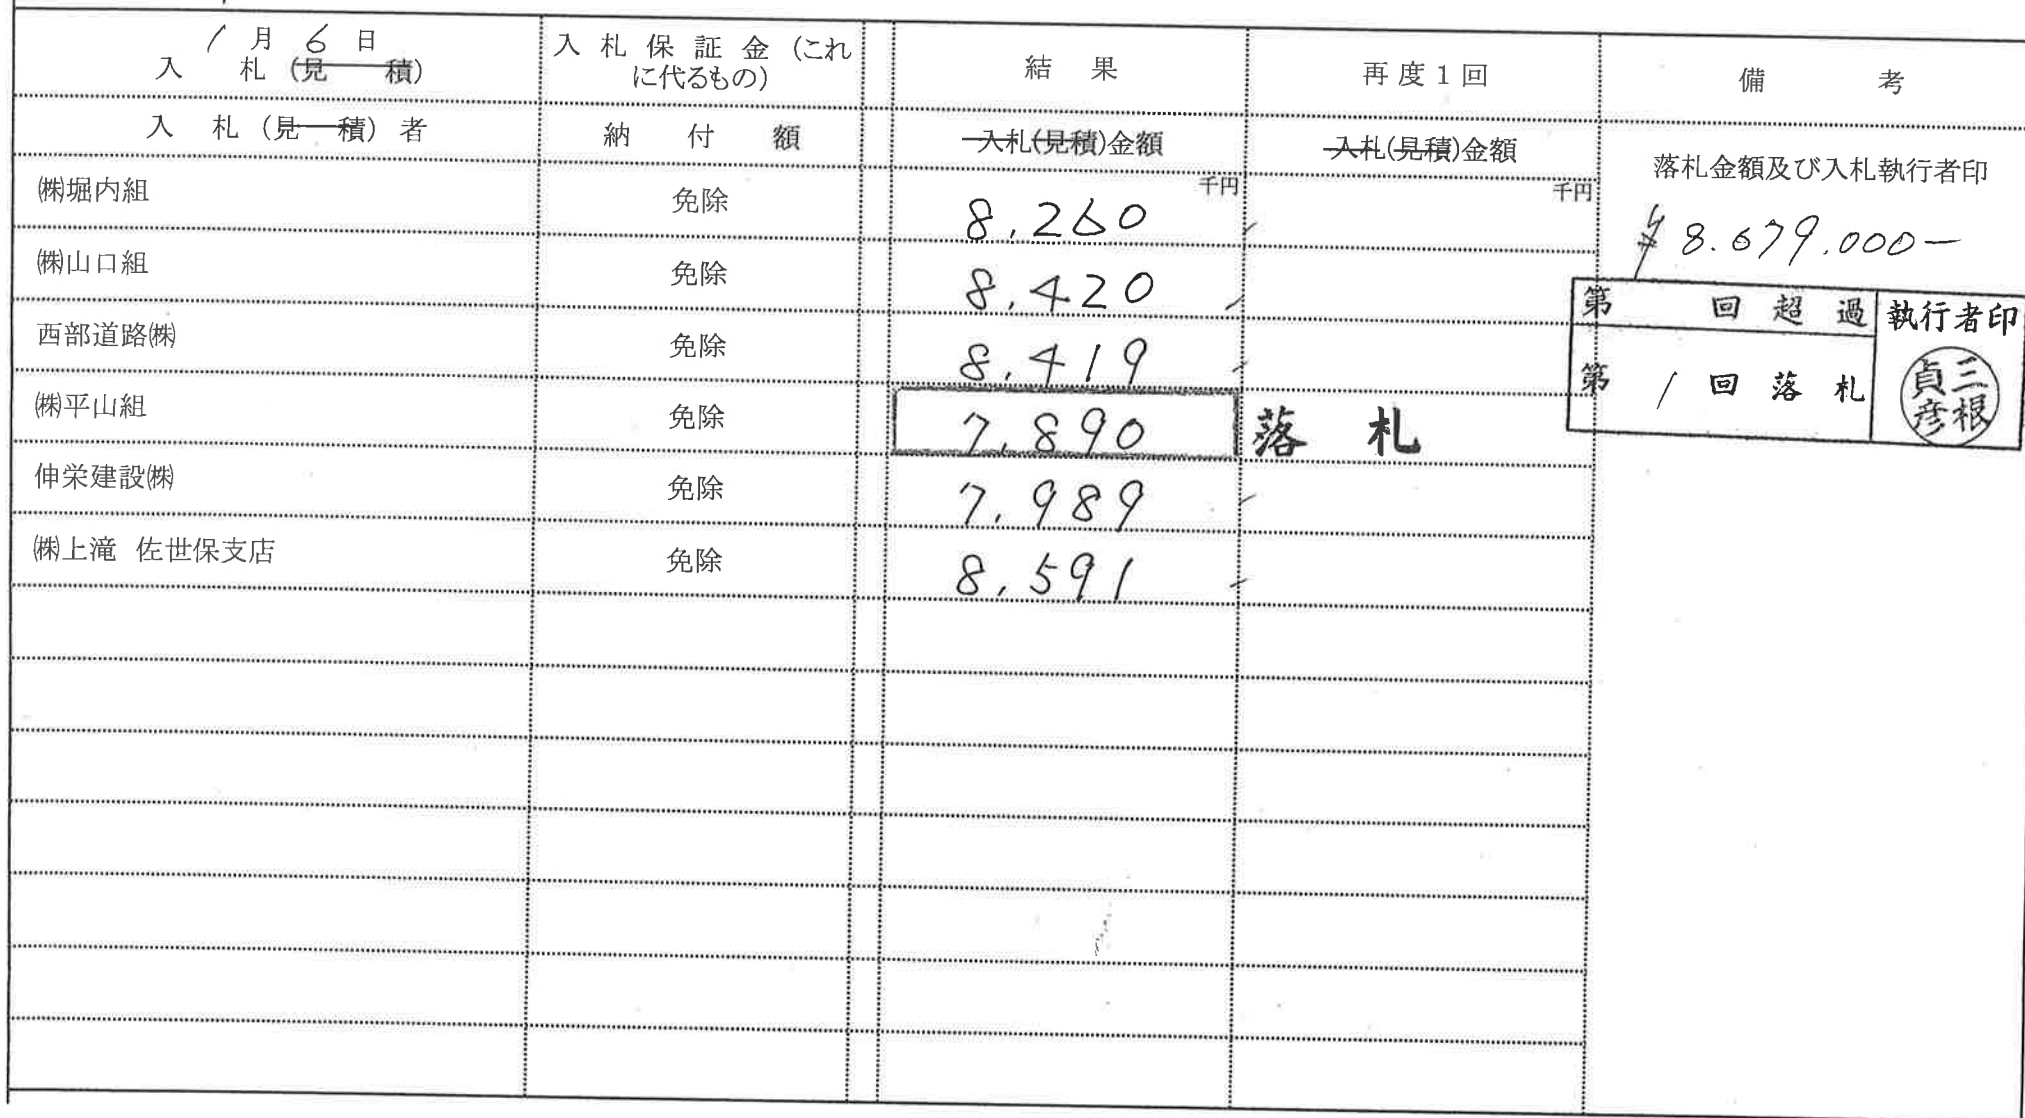 1月6日
入札(見積)
入札保証金(これに代るもの)
結果
再度1回
備考
入札(見積)者
納付額
入札(見積)金額
入札(見積)金額
落札金額及び入札執行者印
千円
千円
㈱堀内組 免除 8,260
¥8.679.000-
㈱山口組 免除 8,420
第 回超過 執行者印
西部道路㈱ 免除 8,419
第1回落札
三根貞彦
㈱平山組 免除 7,890 落札
伸栄建設㈱ 免除 7,989
㈱上滝 佐世保支店 免除 8,591